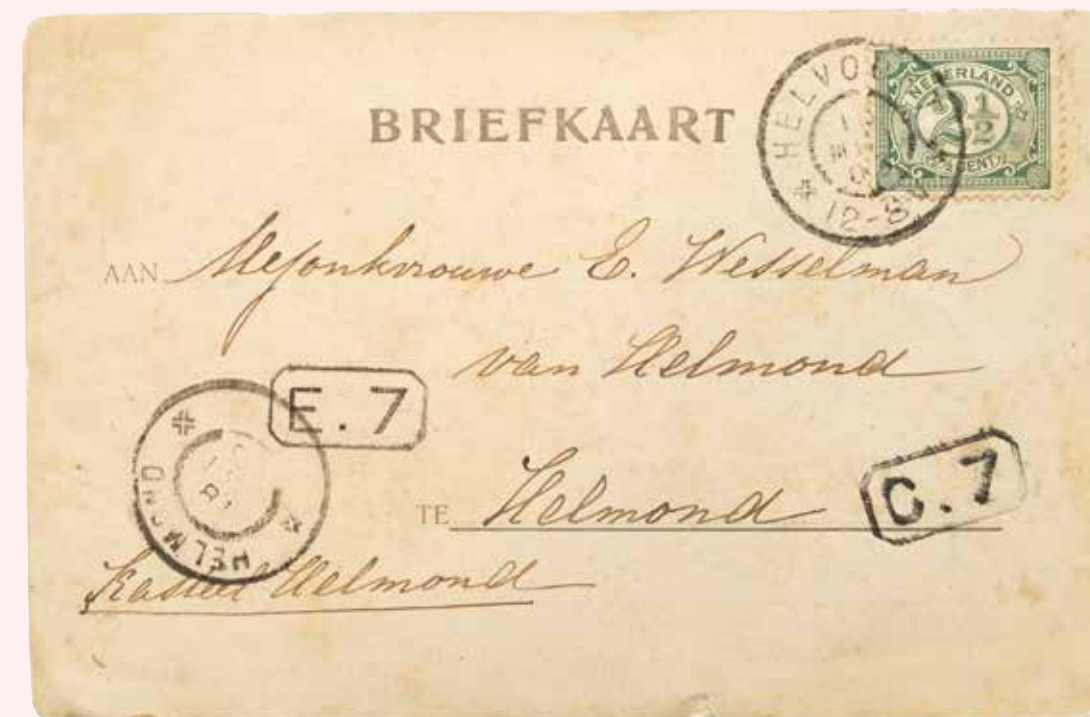 BRIEFKAART
HELVO
12-8
NEDERLAND
2 1/2
CENT
AAN Mejonkvrouwe E. Wesselman
van Helmond
E. 7
C. 7
HELMOND
TE Helmond
Kasteel Helmond